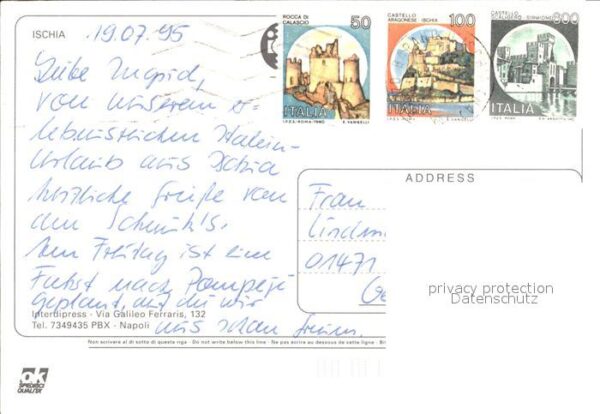 ISCHIA
19.07.95
Liebe Ingrid,
von unserem er=
lebnisreichen Italien-
urlaub aus Ischia
herzliche Grüße von
den Schmidt's.
Am Freitag ist eine
Fahrt nach Pompeji
geplant, auf die wir
uns schon freuen.
Interdipress - Via Galileo Ferraris, 132
Tel. 7349435 PBX - Napoli
Non scrivere al di sotto di questa riga - Do not write below this line - Ne pas écrire au dessous de cette ligne -
OK
SPEDISCI
QUALITA'
ROCCA DI
CALASCIO
50
ITALIA
I.P.Z.S.-ROMA-1980
E. VANGELLI
CASTELLO
ARAGONESE ISCHIA
100
ITALIA
I.P.Z.S. ROMA
E. VANGELLI
CASTELLO
SCALIGERO SIRMIONE
300
ITALIA
I.P.Z.S. ROMA
ADDRESS
Frau
01471
privacy protection
Datenschutz